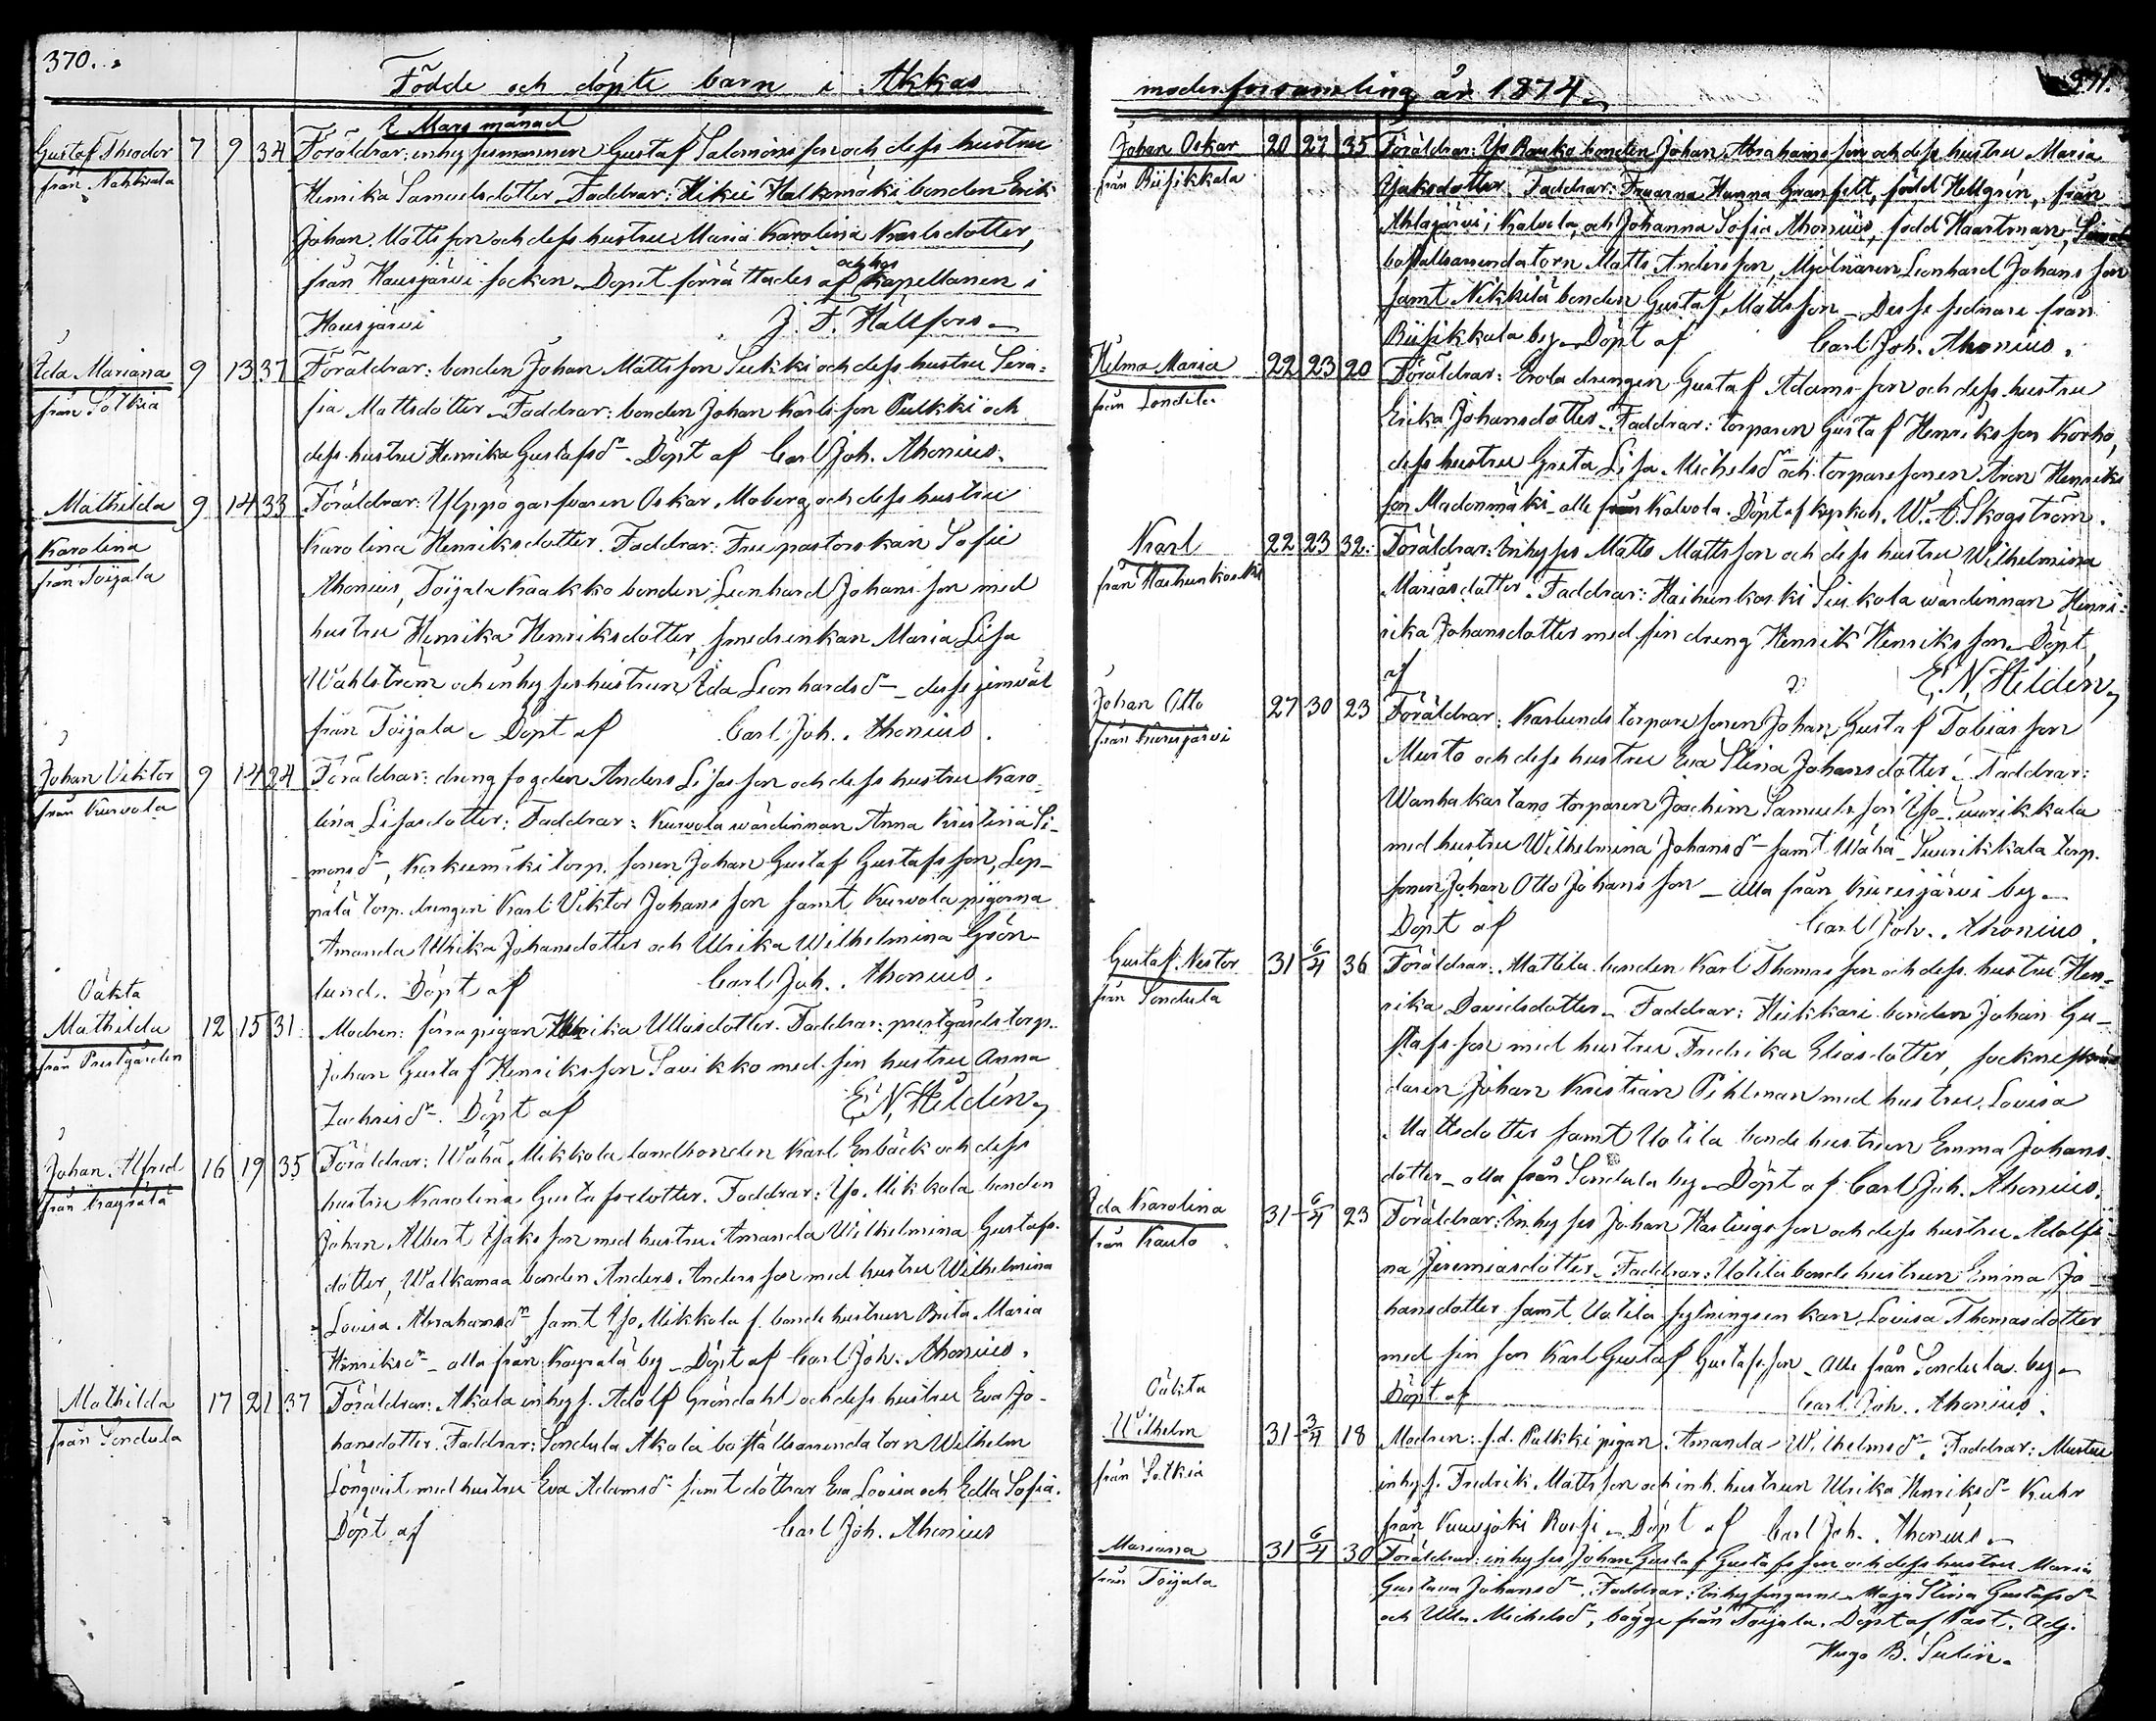 370.
Födde och döpte barn i Akkas
i Mars månad
Gustaf Theodor 7 9 34 Föräldrar: inhysesmannen Gustaf Salomonsson och dess hustru
från Nahkiala Henrika Samuelsdotter. Faddrar: Halkomäki bonden Erik
Johan Mattsson och dess hustru Maria Karolina Karlsdotter,
från Hausjärvi socken. Dopet förrättades af och hos Kapellanen i
Hausjärvi J. F. Hällfors
Ida Mariana 9 13 37 Föräldrar: bonden Johan Mattsson Sukki och dess hustru Sera-
från Sotkia fia Mattsdotter. Faddrar: bonden Johan Karlsson Pulkki och
dess hustru Henrika Gustafsdr. Döpt af Carl Joh. Ahonius.
Mathilda 9 14 33 Föräldrar: Ylppö garfvaren Oskar Moberg och dess hustru
Karolina Karolina Henriksdotter. Faddrar: Fru pastorskan Sofie
från Toijala Ahonius, Toijala Kaakko bonden Leonhard Johansson med
hustru Henrika Henriksdotter, smedsenkan Maria Lisa
Wahlström och inhyseshustrun Ida Leonhardsdr – desse jemväl
från Toijala. Döpt af Carl Joh. Ahonius.
Johan Viktor 9 14 24 Föräldrar: drengfogden Anders Lisasson och dess hustru Karo-
från Kurvola lina Lisasdotter: Faddrar: Kurvola wärdinnan Anna Kristina Si-
monsdr, Koskuemäki torp. sonen Johan Gustaf Gustafsson, Lep-
pälä torp. drengen Karl Viktor Johansson samt Kurvola pigorna
Amanda Ulrika Johansdotter och Ulrika Wilhelmina Grön-
lund. Döpt af Carl Joh. Ahonius.
Oäkta
Mathilda 12 15 31 Modren: förra pigan Ulrika Ullasdotter. Faddrar: prestgårds torp.
från Prestgården Johan Gustaf Henriksson Savikko med sin hustru Anna
Zachrisdr. Döpt af E. N. Hildén
Johan Alfred 16 19 35 Föräldrar: Wähä Mikkola landbonden Karl Enbäck och dess
från Kayrälä hustru Karolina Gustafsdotter. Faddrar: Iso Mikkola bonden
Johan Albert Isaksson med hustru Amanda Wilhelmina Gustafs-
dotter, Walkamaa bonden Anders Andersson med hustru Wilhelmina
Lovisa Abrahamsdr samt Iso Mikkola f. bonde hustrun Brita Maria
Henriksdr – alla från Kayrälä by. Döpt af Carl Joh. Ahonius.
Mathilda 17 21 37 Föräldrar: Akola inhys. Adolf Gröndahl och dess hustru Eva Jo-
från Sondula hansdotter. Faddrar: Sondula Akola boställsarrendatorn Wilhelm
Lönqvist med hustru Eva Adamsdr samt döttrar Eva Lovisa och Edla Sofia.
Döpt af Carl Joh. Ahonius
moderförsamling år 1874.
371.
Johan Oskar 20 27 35 Föräldrar: Iso Rauko bonden Johan Abrahamsson och dess hustru Maria
från Riisikkala Isaksdotter. Faddrar: Fruarna Hanna Granfelt, född Hellgrén, från
Ahlajärvi i Kalvola, och Johanna Sofia Ahonius, född Haartman,
boställsarrendatorn Matts Andersson, Mjölnaren Leonhard Johansson
samt Nikkilä bonden Gustaf Mattsson – Desse sednare från
Riisikkala by. Döpt af Carl Joh. Ahonius.
Helma Maria 22 23 20 Föräldrar: Erola drengen Gustaf Adamsson och dess hustru
från Sondula Erika Johansdotter. Faddrar: torparen Gustaf Henriksson Korho,
dess hustru Greta Lisa Michelsdr och torparesonen Aron Henriks-
son Madonmäki – alle från Kalvola. Döpt af kyrkoh. W. A. Skogström.
Karl 22 23 32 Föräldrar: Inhyses Matts Mattsson och dess hustru Wilhelmina
från Haihunkoski Mariasdotter. Faddrar: Haihunkoski Siukola wärdinnan Henri-
rika Johansdotter med sin dreng Henrik Henriksson. Döpt
af E. N. Hildén
Johan Otto 27 30 23 Föräldrar: Karlunds torparesonen Johan Gustaf Tobiasson
från Kurisjärvi Musto och dess hustru Eva Stina Johansdotter. Faddrar:
Wanhakartano torparen Joachim Samuelsson Iso-Suurikkala
med hustru Wilhelmina Johansdr samt Wähä-Suurikkala torp.
sonen Johan Otto Johansson – alla från Kurisjärvi by.
Döpt af Carl Joh. Ahonius.
Gustaf Nestor 31 6/4 36 Föräldrar: Mattila bonden Karl Thomasson och dess hustru Hen-
från Sondula rika Davidsdotter. Faddrar: Heikkari bonden Johan Gu-
stafsson med hustru Fredrika Eliasdotter, socknesskräd-
daren Johan Kristian Pihlman med hustru Lovisa
Mattsdotter samt Uotila bonde hustrun Emma Johans-
dotter – alla från Sondula by. Döpt af Carl Joh. Ahonius.
Ida Karolina 31 6/4 23 Föräldrar: Inhyses Johan Hartvigsson och dess hustru Adolfi-
från Kauto na Jeremiasdotter. Faddrar: Uotila bonde hustrun Emma Jo-
hansdotter samt Uotila sytningsenkan Lovisa Thomasdotter
med sin son Karl Gustaf Gustafsson – Alla från Sondula by.
Döpt af Carl Joh. Ahonius.
Oäkta
Wilhelm 31 3/4 18 Modren: f.d. Pulkki pigan Amanda Wilhelmsdr. Faddrar: Mustu
från Sotkia inhys. Fredrik Mattsson och inh. hustrun Ulrika Henriksdr Kuhr
från Kuusjoki Roisi. Döpt af Carl Joh. Ahonius
Marianna 31 6/4 30 Föräldrar: inhyses Johan Gustaf Gustafsson och dess hustru Maria
från Toijala Gustava Johansdr. Faddrar: Inhysingarne Maja Stina Gustafsdr
och Ulla Michelsdr, bägge från Toijala. Döpt af Past. Adj.
Hugo B. Sulin.